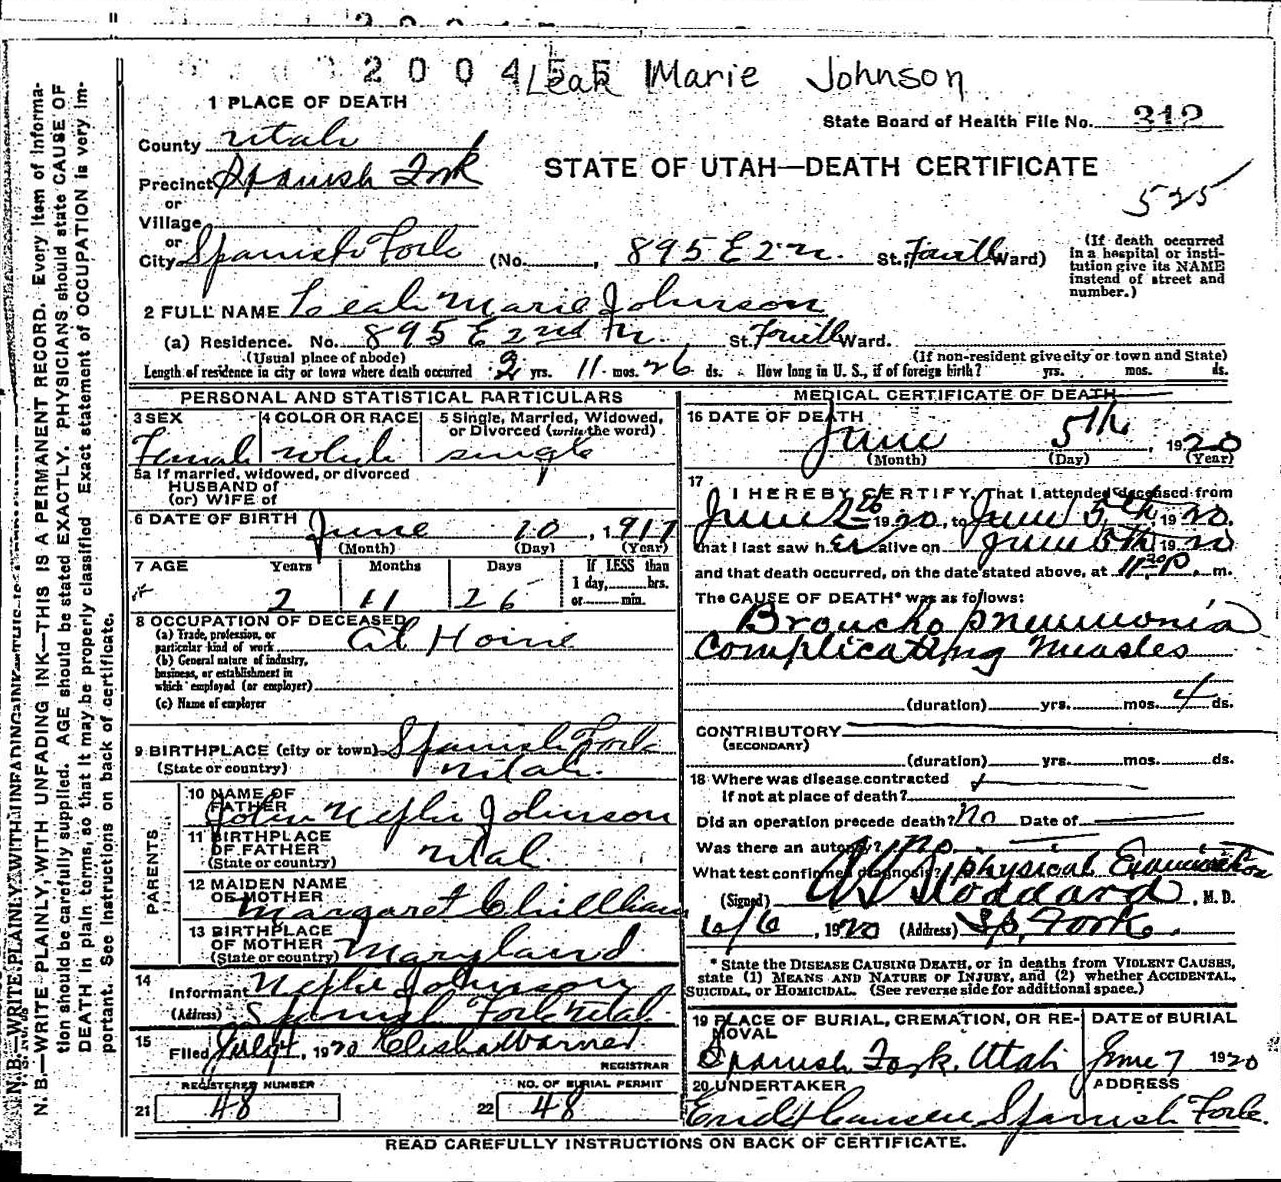 2 0 0 4 5 5 1
Leah Marie Johnson
1 PLACE OF DEATH
State Board of Health File No. 312
County Utah
STATE OF UTAH—DEATH CERTIFICATE
Precinct Spanish Fork
525
or
Village
or
City Spanish Fork (No. , 895 E 2 n. St.; Ward)
(If death occurred
in a hospital or insti-
tution give its NAME
instend of street and
number.)
2 FULL NAME Leah Marie Johnson
(a) Residence. No. 895 E 2nd N. St. Ward.
(Usual place of abode) (If non-resident give city or town and State)
Length of residence in city or town where death occurred 2 yrs. 11 mos. 26 ds. How long in U. S., if of foreign birth? yrs. mos. ds.
PERSONAL AND STATISTICAL PARTICULARS
3 SEX 4 COLOR OR RACE 5 Single, Married, Widowed,
or Divorced (write the word)
Female White single
5a If married, widowed, or divorced
HUSBAND of
(or) WIFE of
6 DATE OF BIRTH June 10, 1917
(Month) (Day) (Year)
7 AGE Years Months Days If LESS than
1 day, hrs.
or min.
2 11 26
8 OCCUPATION OF DECEASED
(a) Trade, profession, or
particular kind of work At Home
(b) General nature of industry,
business, or establishment in
which employed (or employer)
(c) Name of employer
9 BIRTHPLACE (city or town) Spanish Fork
(State or country) Utah.
PARENTS
10 NAME OF
FATHER John Nephi Johnson
11 BIRTHPLACE
OF FATHER
(State or country) Utah
12 MAIDEN NAME
OF MOTHER Margaret
13 BIRTHPLACE
OF MOTHER
(State or country) Maryland
14
Informant Nephi Johnson
(Address) Spanish Fork Utah.
15
Filed July 4, 1920 Elisha Warner
REGISTRAR
REGISTERED NUMBER NO. OF BURIAL PERMIT
21 48 22 48
MEDICAL CERTIFICATE OF DEATH
16 DATE OF DEATH
June 5th, 1920
(Month) (Day) (Year)
17
I HEREBY CERTIFY, That I attended deceased from
June 2nd 1920, to June 5th, 1920,
that I last saw her alive on June 5th, 1920
and that death occurred, on the date stated above, at 11:30 P. m.
The CAUSE OF DEATH* was as follows:
Broncho pneumonia
Complicating Measles
(duration) yrs. mos. 4 ds.
CONTRIBUTORY
(SECONDARY)
(duration) yrs. mos. ds.
18 Where was disease contracted
If not at place of death?
Did an operation precede death? No Date of
Was there an autopsy? No.
What test confirmed diagnosis? physical Examination
(Signed) Stoddard, M. D.
6/6, 1920 (Address) Sp. Fork.
* State the DISEASE CAUSING DEATH, or in deaths from VIOLENT CAUSES,
state (1) MEANS AND NATURE OF INJURY, and (2) whether ACCIDENTAL,
SUICIDAL, or HOMICIDAL. (See reverse side for additional space.)
19 PLACE OF BURIAL, CREMATION, OR RE-
MOVAL DATE OF BURIAL
Spanish Fork, Utah June 7 1920
20 UNDERTAKER ADDRESS
Hansen Spanish Fork.
READ CAREFULLY INSTRUCTIONS ON BACK OF CERTIFICATE.
N. B.—WRITE PLAINLY, WITH UNFADING INK—THIS IS A PERMANENT RECORD. Every item of informa-
tion should be carefully supplied. AGE should be stated EXACTLY. PHYSICIANS should state CAUSE OF
DEATH in plain terms, so that it may be properly classified. Exact statement of OCCUPATION is very im-
portant. See instructions on back of certificate.